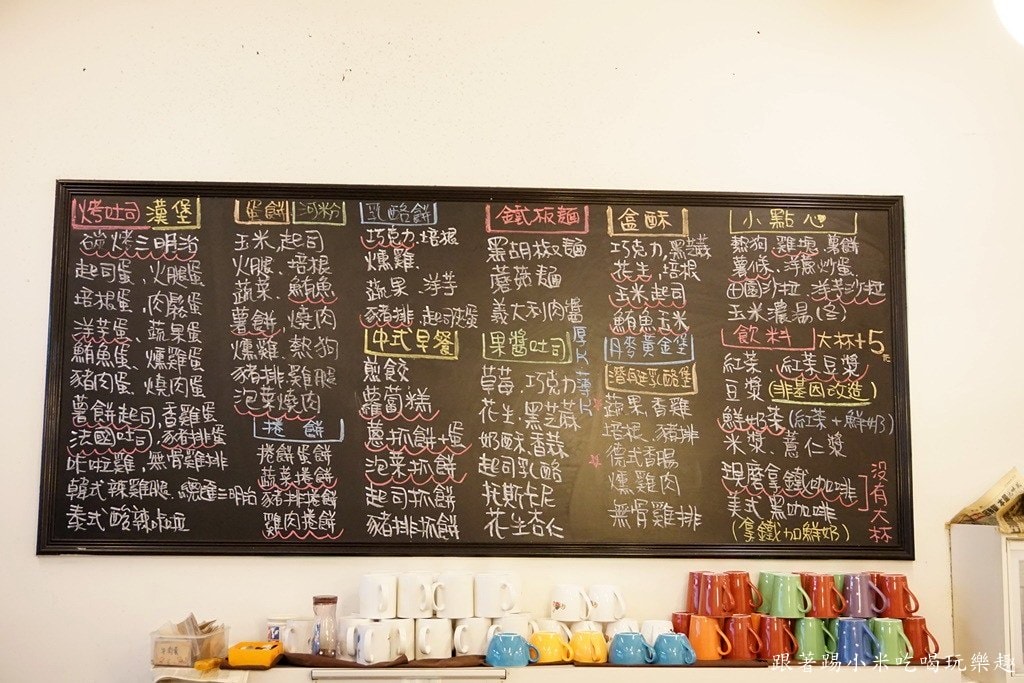 烤吐司 漢堡
碳烤三明治
起司蛋、火腿蛋
培根蛋、肉鬆蛋
洋芋蛋、蔬果蛋
鮪魚蛋、燻雞蛋
豬肉蛋、燒肉蛋
薯餅起司,香雞蛋
法國吐司,豬排蛋
咔啦雞,無骨雞排
韓式辣雞腿、總匯三明治
泰式酸辣咔啦
蛋餅 河粉
玉米,起司
火腿、培根
蔬菜、鮪魚
薯餅,燒肉
燻雞、熱狗
豬排 雞腿
泡菜燒肉
捲餅
捲餅蛋餅
蔬菜捲餅
豬排捲餅
雞肉捲餅
乳酪餅
巧克力.培根
燻雞.
蔬果.洋芋
豬排.起司蛋
中式早餐
煎餃
蘿蔔糕
蔥抓餅+蛋
泡菜抓餅
起司抓餅
豬排抓餅
鐵板麵
黑胡椒麵
蘑菇麵
義大利肉醬
果醬吐司
厚片薄片
草莓、巧克力
花生、黑芝麻
奶酥、香蒜
起司乳酪
托斯卡尼
花生杏仁
盒酥
巧克力,黑芝麻
花生,培根
玉米起司
鮪魚玉米
丹麥黃金堡
潛艇乳酪堡
蔬果.香雞
培根.豬排
德式香腸
燻雞肉
無骨雞排
小點心
熱狗.雞塊.薯餅
薯條.洋蔥炒蛋
田園沙拉 洋芋沙拉
玉米濃湯(冬)
飲料 大杯+5元
紅茶.紅茶豆漿
豆漿(非基因改造)
鮮奶茶(紅茶+鮮奶)
米漿、薏仁漿
現磨拿鐵咖啡
美式黑咖啡
(拿鐵加鮮奶)
沒有大杯
跟著踢小米吃喝玩樂趣